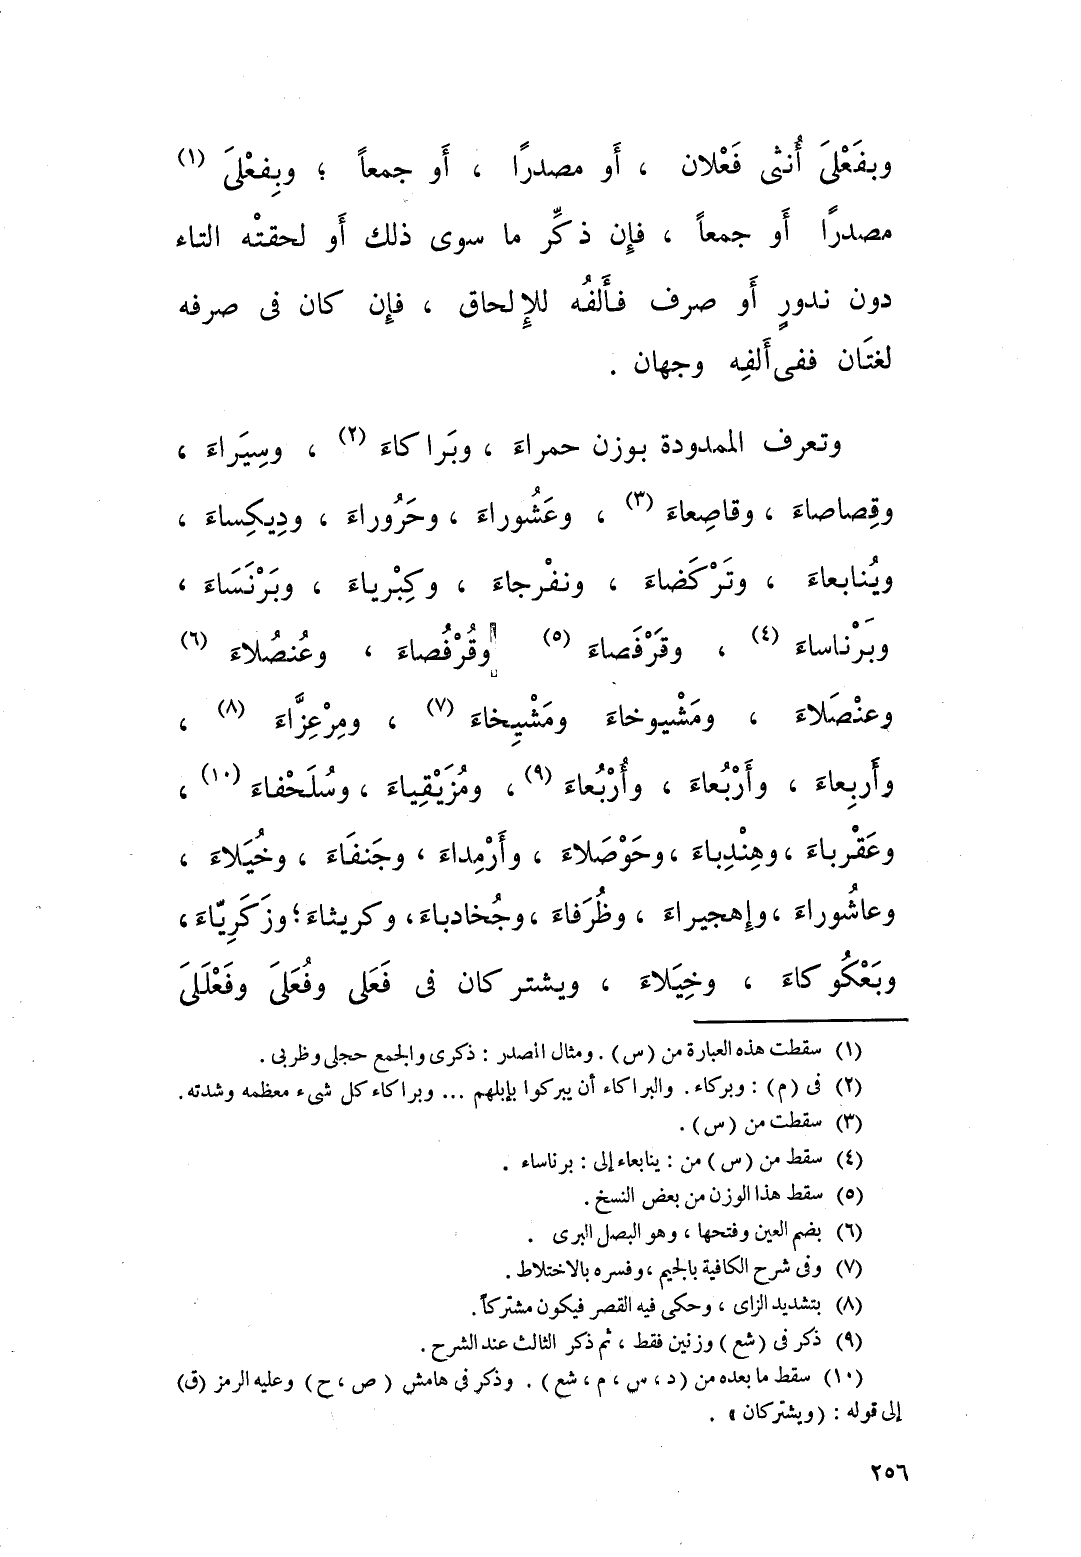 وبفَعْلىَ أُنثى فَعْلان ، أَو مصدرًا ، أَو جمعاً ؛ وبِفعْلىَ (١)
مصدرًا أَو جمعاً ، فإِن ذكِّر ما سوى ذلك أَو لحقتْه التاء
دون ندورٍ أَو صرف فأَلفُه للإِلحاق ، فإِن كان فى صرفه
لغتَان ففى أَلفِه وجهان .
وتعرف الممدودة بوزن حمراءَ ، وبَراكاءَ (٢) ، وسِيَراءَ ،
وقِصاصاءَ ، وقاصِعاءَ (٣) ، وعَشُوراءَ ، وحَرُوراءَ ، ودِيكِساءَ ،
ويُنابعاءَ ، وتَرْكَضاءَ ، ونفْرجاءَ ، وكِبْرياءَ ، وبَرْنَسَاءَ ،
وبَرْناساءَ (٤) ، وقَرْفَصاءَ (٥) [وقُرْفُصاءَ ، وعُنصُلاءَ (٦)
وعنْصَلاءَ ، ومَشْيوخاءَ ومَشْيِخاءَ (٧) ، ومِرْعِزَّاءَ (٨) ،
وأَربِعاءَ ، وأَرْبُعاءَ ، وأُرْبُعاءَ (٩) ، ومُزَيْقِياءَ ، وسُلَحْفاءَ (١٠) ،
وعَقْرباءَ ، وهِنْدِباءَ ، وحَوْصَلاءَ ، وأَرْمِداءَ ، وجَنفَاءَ ، وخُيَلاءَ ،
وعاشُوراءَ ، وإهجيراءَ ، وظُرَفاءَ ، وجُخادباءَ ، وكريثاءَ ؛ وزَكَرِيّاءَ ،
وبَعْكُوكاءَ ، وخِيَلاءَ ، ويشتركان فى فَعَلى وفُعَلىَ وفَعْلَلىَ
(١) سقطت هذه العبارة من (س) . ومثال المصدر : ذكرى والجمع حجلى وظربى .
(٢) فى (م) : وبركاء . والبراكاء أن يبركوا بإبلهم ... وبراكاء كل شىء معظمه وشدته .
(٣) سقطت من (س) .
(٤) سقط من (س) من : ينابعاء إلى : برناساء .
(٥) سقط هذا الوزن من بعض النسخ .
(٦) بضم العين وفتحها ، وهو البصل البرى .
(٧) وفى شرح الكافية بالجيم ، وفسره بالاختلاط .
(٨) بتشديد الزاى ، وحكى فيه القصر فيكون مشتركاً .
(٩) ذكر فى (شع) وزنين فقط ، ثم ذكر الثالث عند الشرح .
(١٠) سقط ما بعده من (د ، س ، م ، شع) . وذكر فى هامش (ص ، ح) وعليه الرمز (ق)
إلى قوله : (ويشتركان» .
٢٥٦